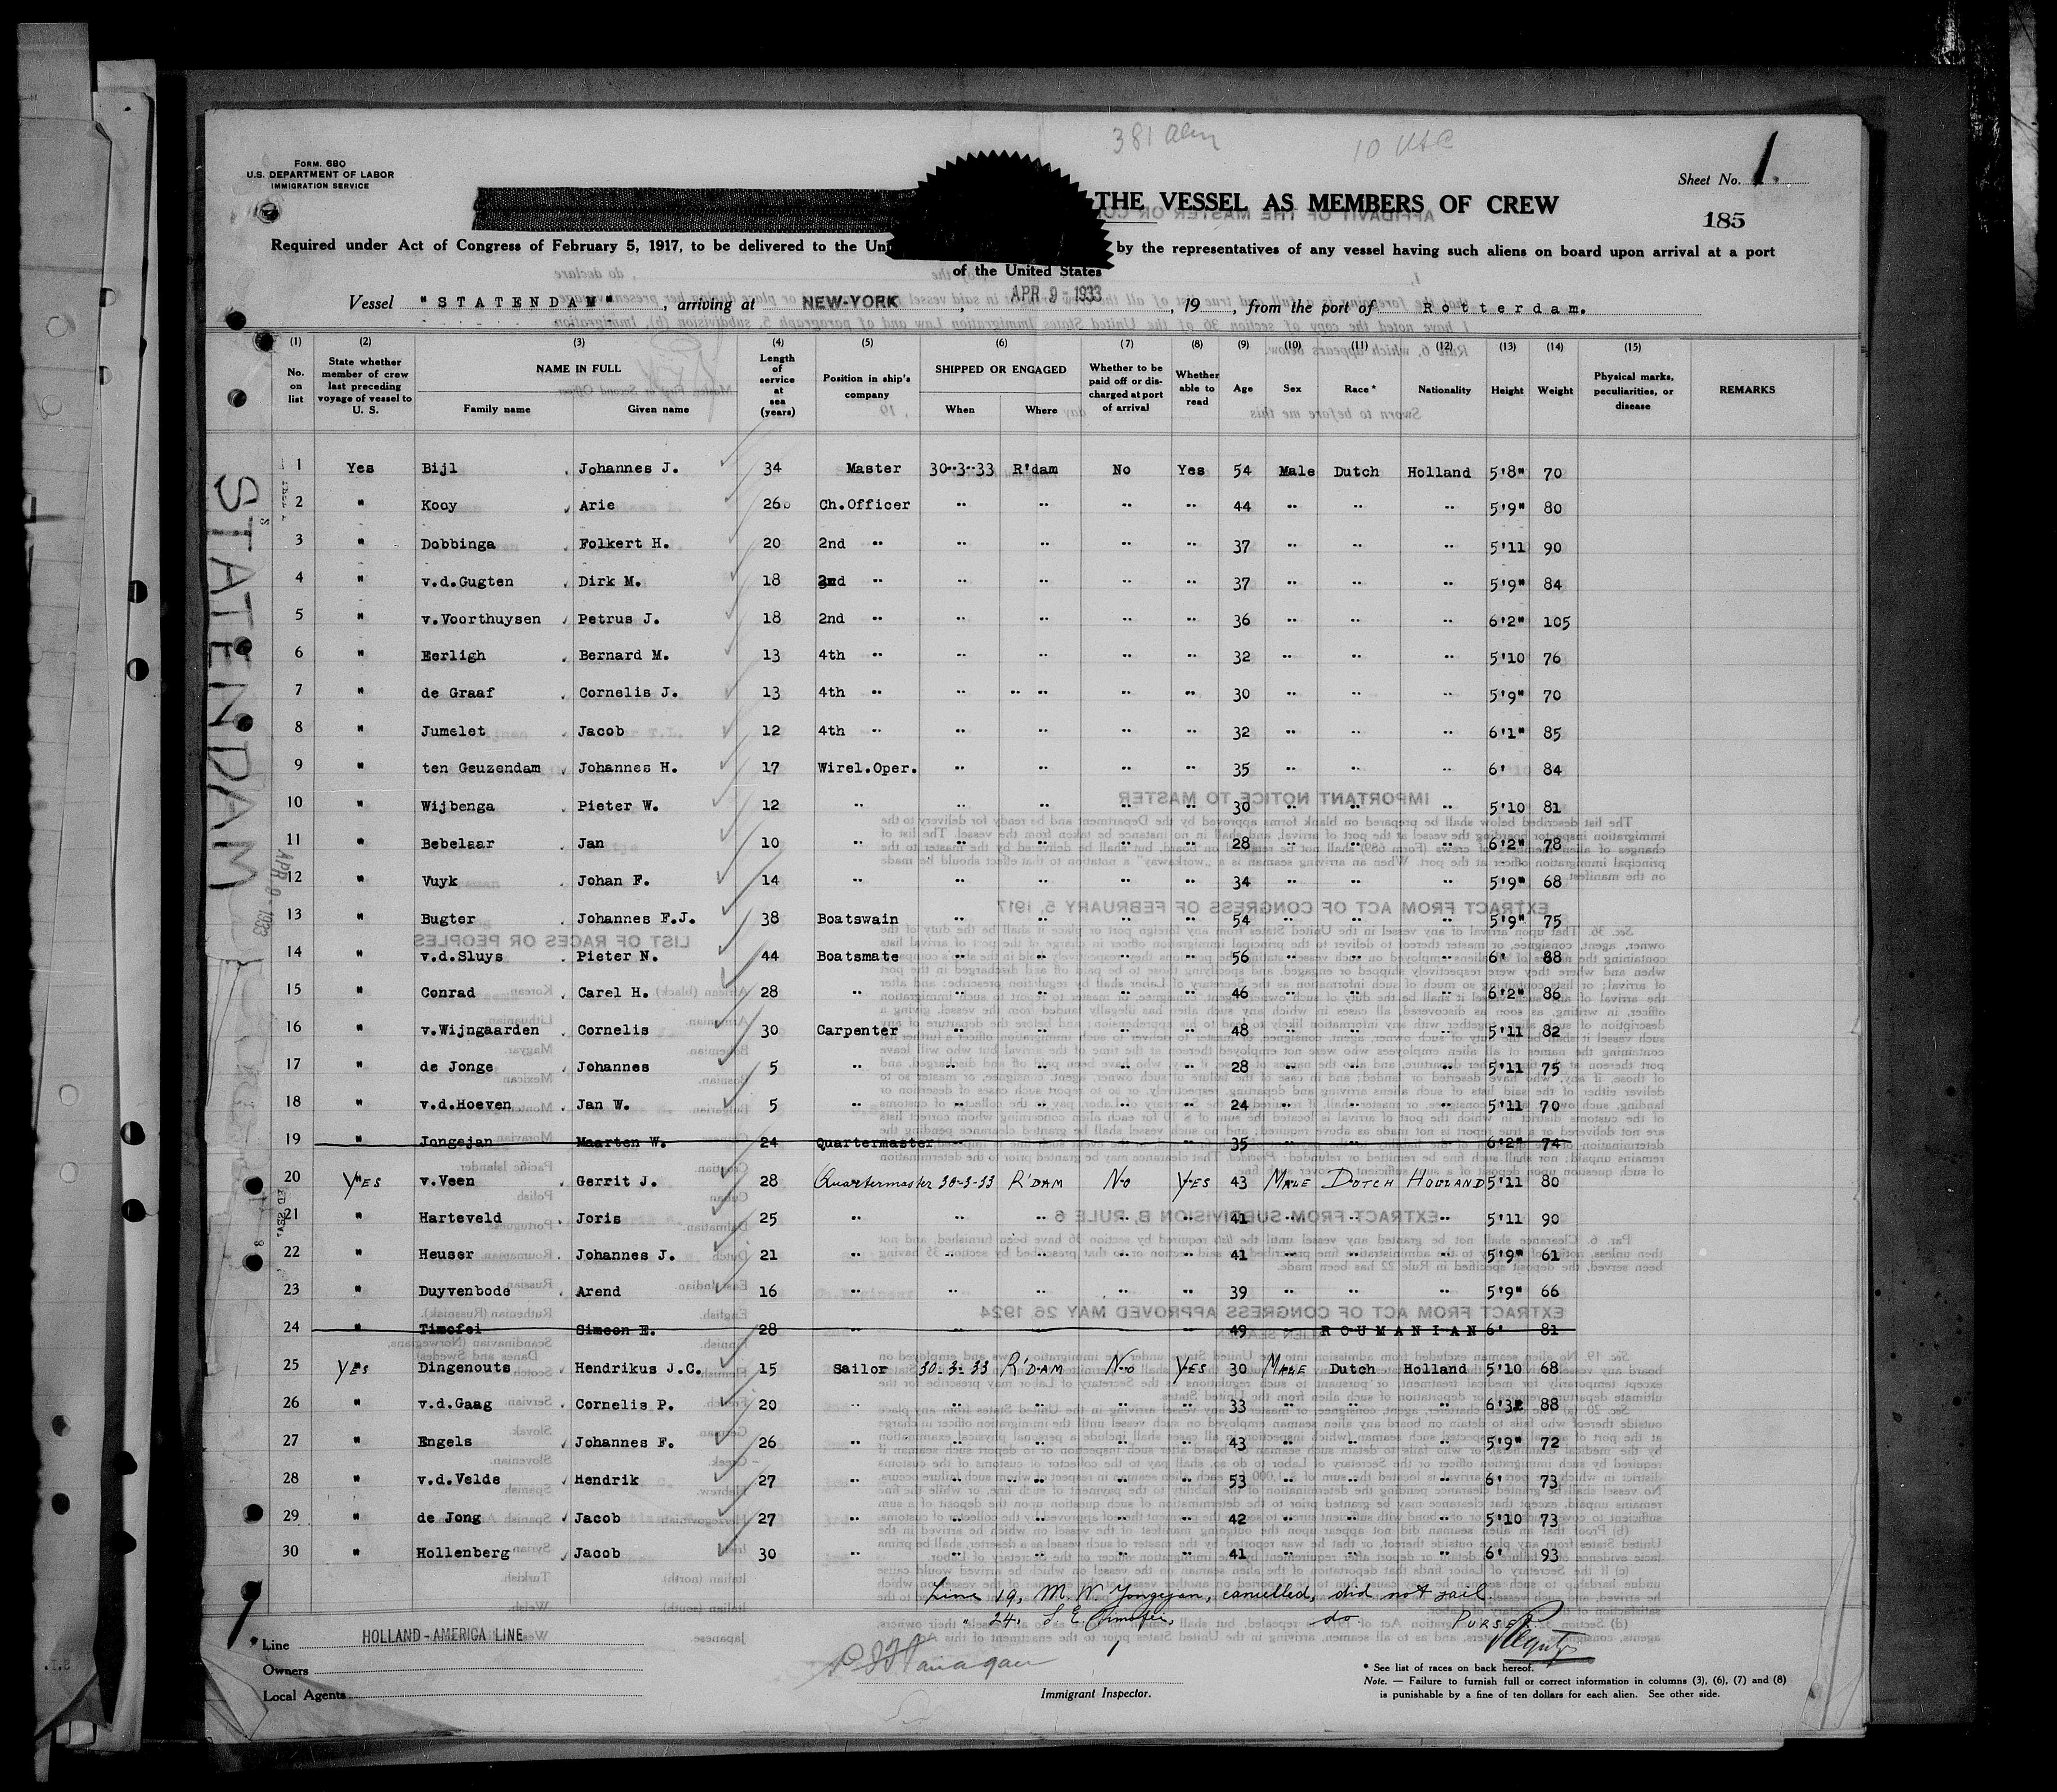 381 Alien
10 USC
FORM. 680
U.S. DEPARTMENT OF LABOR
IMMIGRATION SERVICE
Sheet No. 1.
THE VESSEL AS MEMBERS OF CREW
185
Required under Act of Congress of February 5, 1917, to be delivered to the Uni by the representatives of any vessel having such aliens on board upon arrival at a port
of the United States
Vessel "STATENDAM", arriving at NEW-YORK, APR 9 - 1933, 19 , from the port of Rotterdam.
(1) (2) (3) (4) (5) (6) (7) (8) (9) (10) (11) (12) (13) (14) (15)
No. on list State whether member of crew last preceding voyage of vessel to U. S. NAME IN FULL Family name Given name Length of service at sea (years) Position in ship's company SHIPPED OR ENGAGED When Where Whether to be paid off or discharged at port of arrival Whether able to read Age Sex Race* Nationality Height Weight Physical marks, peculiarities, or disease REMARKS
1 Yes Bijl Johannes J. 34 Master 30-3-33 R'dam No Yes 54 Male Dutch Holland 5'8" 70
2 " Kooy Arie 26 Ch.Officer " " " " 44 " " " 5'9" 80
3 " Dobbinga Folkert H. 20 2nd " " " " " 37 " " " 5'11 90
4 " v.d.Gugten Dirk M. 18 2nd " " " " " 37 " " " 5'9" 84
5 " v.Voorthuysen Petrus J. 18 2nd " " " " " 36 " " " 6'2" 105
6 " Eerligh Bernard M. 13 4th " " " " " 32 " " " 5'10 76
7 " de Graaf Cornelis J. 13 4th " " " " " 30 " " " 5'9" 70
8 " Jumelet Jacob 12 4th " " " " " 32 " " " 6'1" 85
9 " ten Geuzendam Johannes H. 17 Wirel.Oper. " " " " 35 " " " 6' 84
10 " Wijbenga Pieter W. 12 " " " " " 30 " " " 5'10 81
11 " Bebelaar Jan 10 " " " " " 28 " " " 6'2" 78
12 " Vuyk Johan F. 14 " " " " " 34 " " " 5'9" 68
13 " Bugter Johannes F.J. 38 Boatswain " " " " 54 " " " 5'9" 75
14 " v.d.Sluys Pieter N. 44 Boatsmate " " " " 56 " " " 6' 88
15 " Conrad Carel H. 28 " " " " " 46 " " " 6'2" 86
16 " v.Wijngaarden Cornelis 30 Carpenter " " " " 48 " " " 5'11 82
17 " de Jonge Johannes 5 " " " " " 28 " " " 5'11 75
18 " v.d.Hoeven Jan W. 5 " " " " " 24 " " " 5'11 70
19 " Jongejan Maarten W. 24 Quartermaster " " " " 35 " " " 6'2" 74
20 Yes v.Veen Gerrit J. 28 Quartermaster 30-3-33 R'DAM No Yes 43 MALE DUTCH HOLLAND 5'11 80
21 " Harteveld Joris 25 " " " " " 41 " " " 5'11 90
22 " Heuser Johannes J. 21 " " " " " 41 " " " 5'9" 61
23 " Duyvenbode Arend 16 " " " " " 39 " " " 5'9" 66
24 " Timofei Simeon E. 28 " " " " " 49 " ROUMANIAN 6' 81
25 Yes Dingenouts Hendrikus J.C. 15 Sailor 30-3-33 R'DAM No Yes 30 MALE Dutch Holland 5'10 68
26 " v.d.Gaag Cornelis P. 20 " " " " " 33 " " " 6'3 88
27 " Engels Johannes F. 26 " " " " " 43 " " " 5'9" 72
28 " v.d.Velde Hendrik 27 " " " " " 53 " " " 6' 73
29 " de Jong Jacob 27 " " " " " 42 " " " 5'10 73
30 " Hollenberg Jacob 30 " " " " " 41 " " " 6' 93
STATENDAM
APR 9 - 1933
Line 19, M. W. Jongejan, cancelled, did not sail.
" 24, S. E. Timofei, do
PURSER
Line HOLLAND-AMERICA LINE
Owners
Local Agents
Immigrant Inspector.
* See list of races on back hereof.
Note. — Failure to furnish full or correct information in columns (3), (6), (7) and (8)
is punishable by a fine of ten dollars for each alien. See other side.